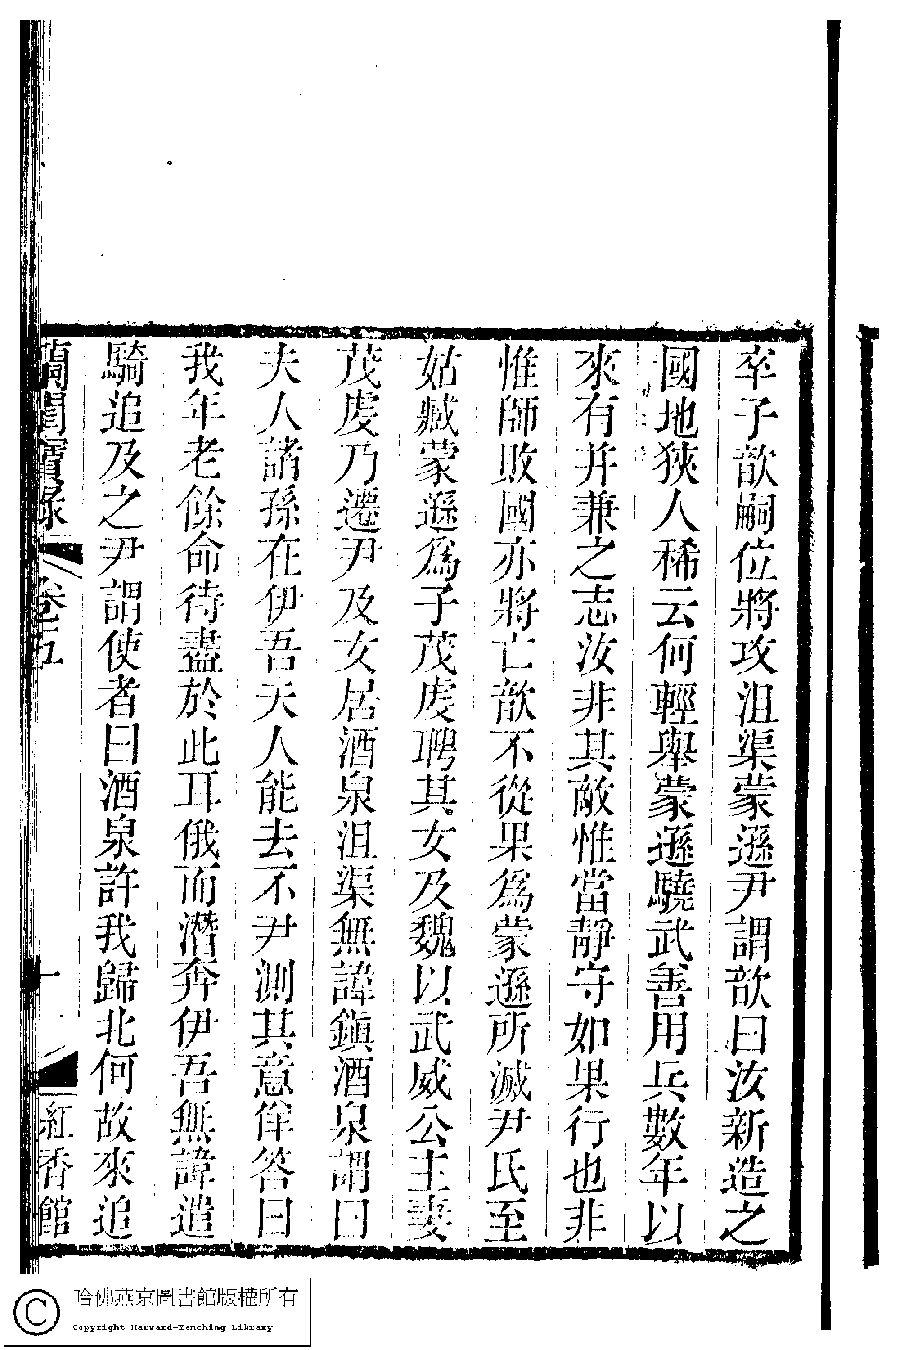 卒子歆嗣位將攻沮渠蒙遜尹謂歆曰汝新造之
國地狹人稀云何輕舉蒙遜驍武善用兵數年以
來有并兼之志汝非其敵惟當靜守如果行也非
惟師敗國亦將亡歆不從果爲蒙遜所滅尹氏至
姑臧蒙遜爲子茂虔聘其女及魏以武威公主妻
茂虔乃遷尹及女居酒泉沮渠無諱鎮酒泉謂曰
夫人諸孫在伊吾夫人能去不尹測其意佯答曰
我年老餘命待盡於此耳俄而潛奔伊吾無諱遣
騎追及之尹謂使者曰酒泉許我歸北何故來追
蘭閨寶錄 卷五 十 紅香館
哈佛燕京圖書館版權所有
Copyright Harvard-Yenching Library